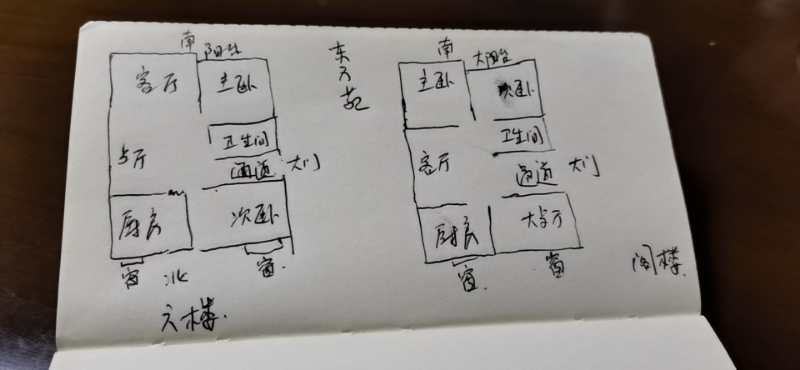 南
阳台
客厅
主卧
卫生间
通道
大门
厨房
次卧
窗
北
窗
六楼
东方苑
南
大阳台
主卧
次卧
卫生间
客厅
通道
大门
厨房
窗
窗
阁楼